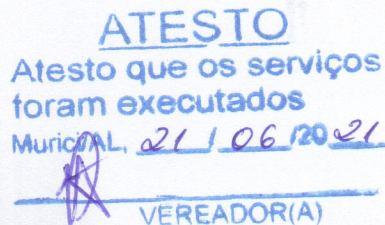 ATESTO
Atesto que os serviços
foram executados
Murici/AL, 21 / 06 /20 21
VEREADOR(A)